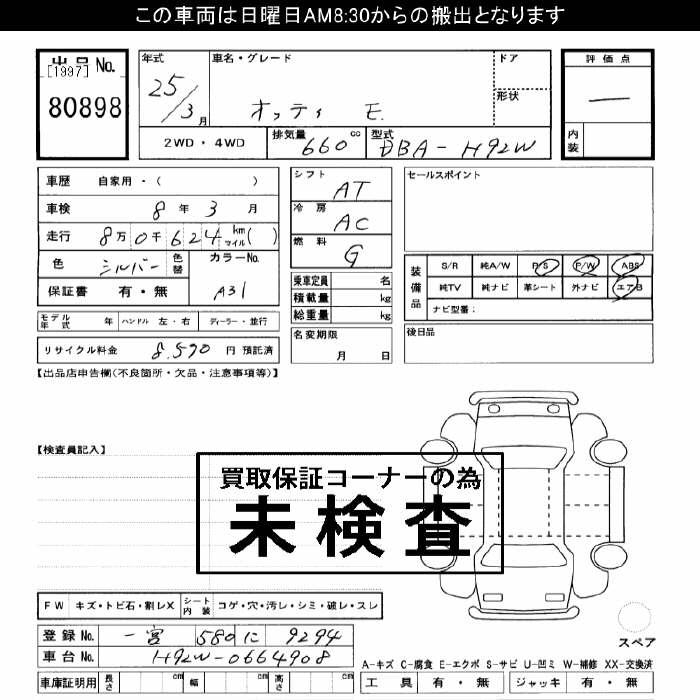 この車両は日曜日AM8:30からの搬出となります
出品 No.
[1997]
80898
年式 車名・グレード ドア
25/3 月 オッティ E. 形状
2WD・4WD 排気量 660 cc 型式 DBA-H92W
評価点
―
内装
車歴 自家用・( )
車検 8年 3月
走行 8万 0千 624 km マイル ( )
色 シルバー 色替 カラーNo.
保証書 有・無 A31
モデル年式 年 ハンドル 左・右 ディーラー・並行
リサイクル料金 8,590 円 預託済
シフト AT
冷房 AC
燃料 G
乗車定員 名
積載量 kg
総重量 kg
名変期限
月 日
セールスポイント
装備品 S/R 純A/W P/S P/W ABS
純TV 純ナビ 革シート 外ナビ エアB
ナビ型番:
後日品
【出品店申告欄(不良箇所・欠品・注意事項等)】
【検査員記入】
買取保証コーナーの為
未検査
FW キズ・トビ石・割レX シート内装 コゲ・穴・汚レ・シミ・破レ・スレ
登録 No. 一宮 580 に 9294
車台 No. H92W-0664908
車庫証明用 長さ cm 幅 cm 高さ cm
スペア
A-キズ C-腐食 E-エクボ S-サビ U-凹ミ W-補修 XX-交換済
工具 有・無 ジャッキ 有・無